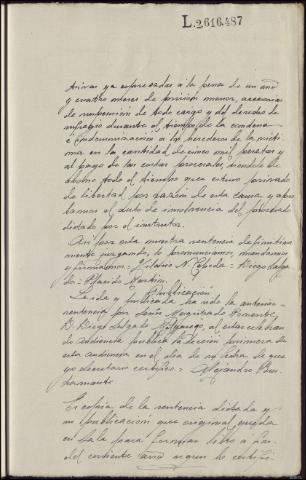 L.2616.487
tivas ya expresadas á la pena de un año
y cuatro meses de prisión menor, accesorias
de suspensión de todo cargo y de derecho de
sufragio durante el tiempo de la condena
é indemnización a los herederos de la vícti-
ma en la cantidad de cinco mil pesetas y
al pago de las costas procesales, siéndole de
abono todo el tiempo que estuvo privado
de libertad por razón de esta causa y apro-
bamos el auto de insolvencia del procesado
dictado por el instructor.
Así por esta nuestra sentencia definitiva-
mente juzgando, lo pronunciamos, mandamos
y firmamos= Diego Salga-
do=
Publicación
Leida y publicada ha sido la anterior
sentencia por
D. Diego Salgado al estar celebran-
do audiencia publica la sección primera de
esta audiencia en el día de su fecha de que
yo secretario certifico= Alejandro Bus-
tamante.
Es copia de la sentencia dictada y
su publicación que original queda
en Sala para
del corriente año segun lo certifico